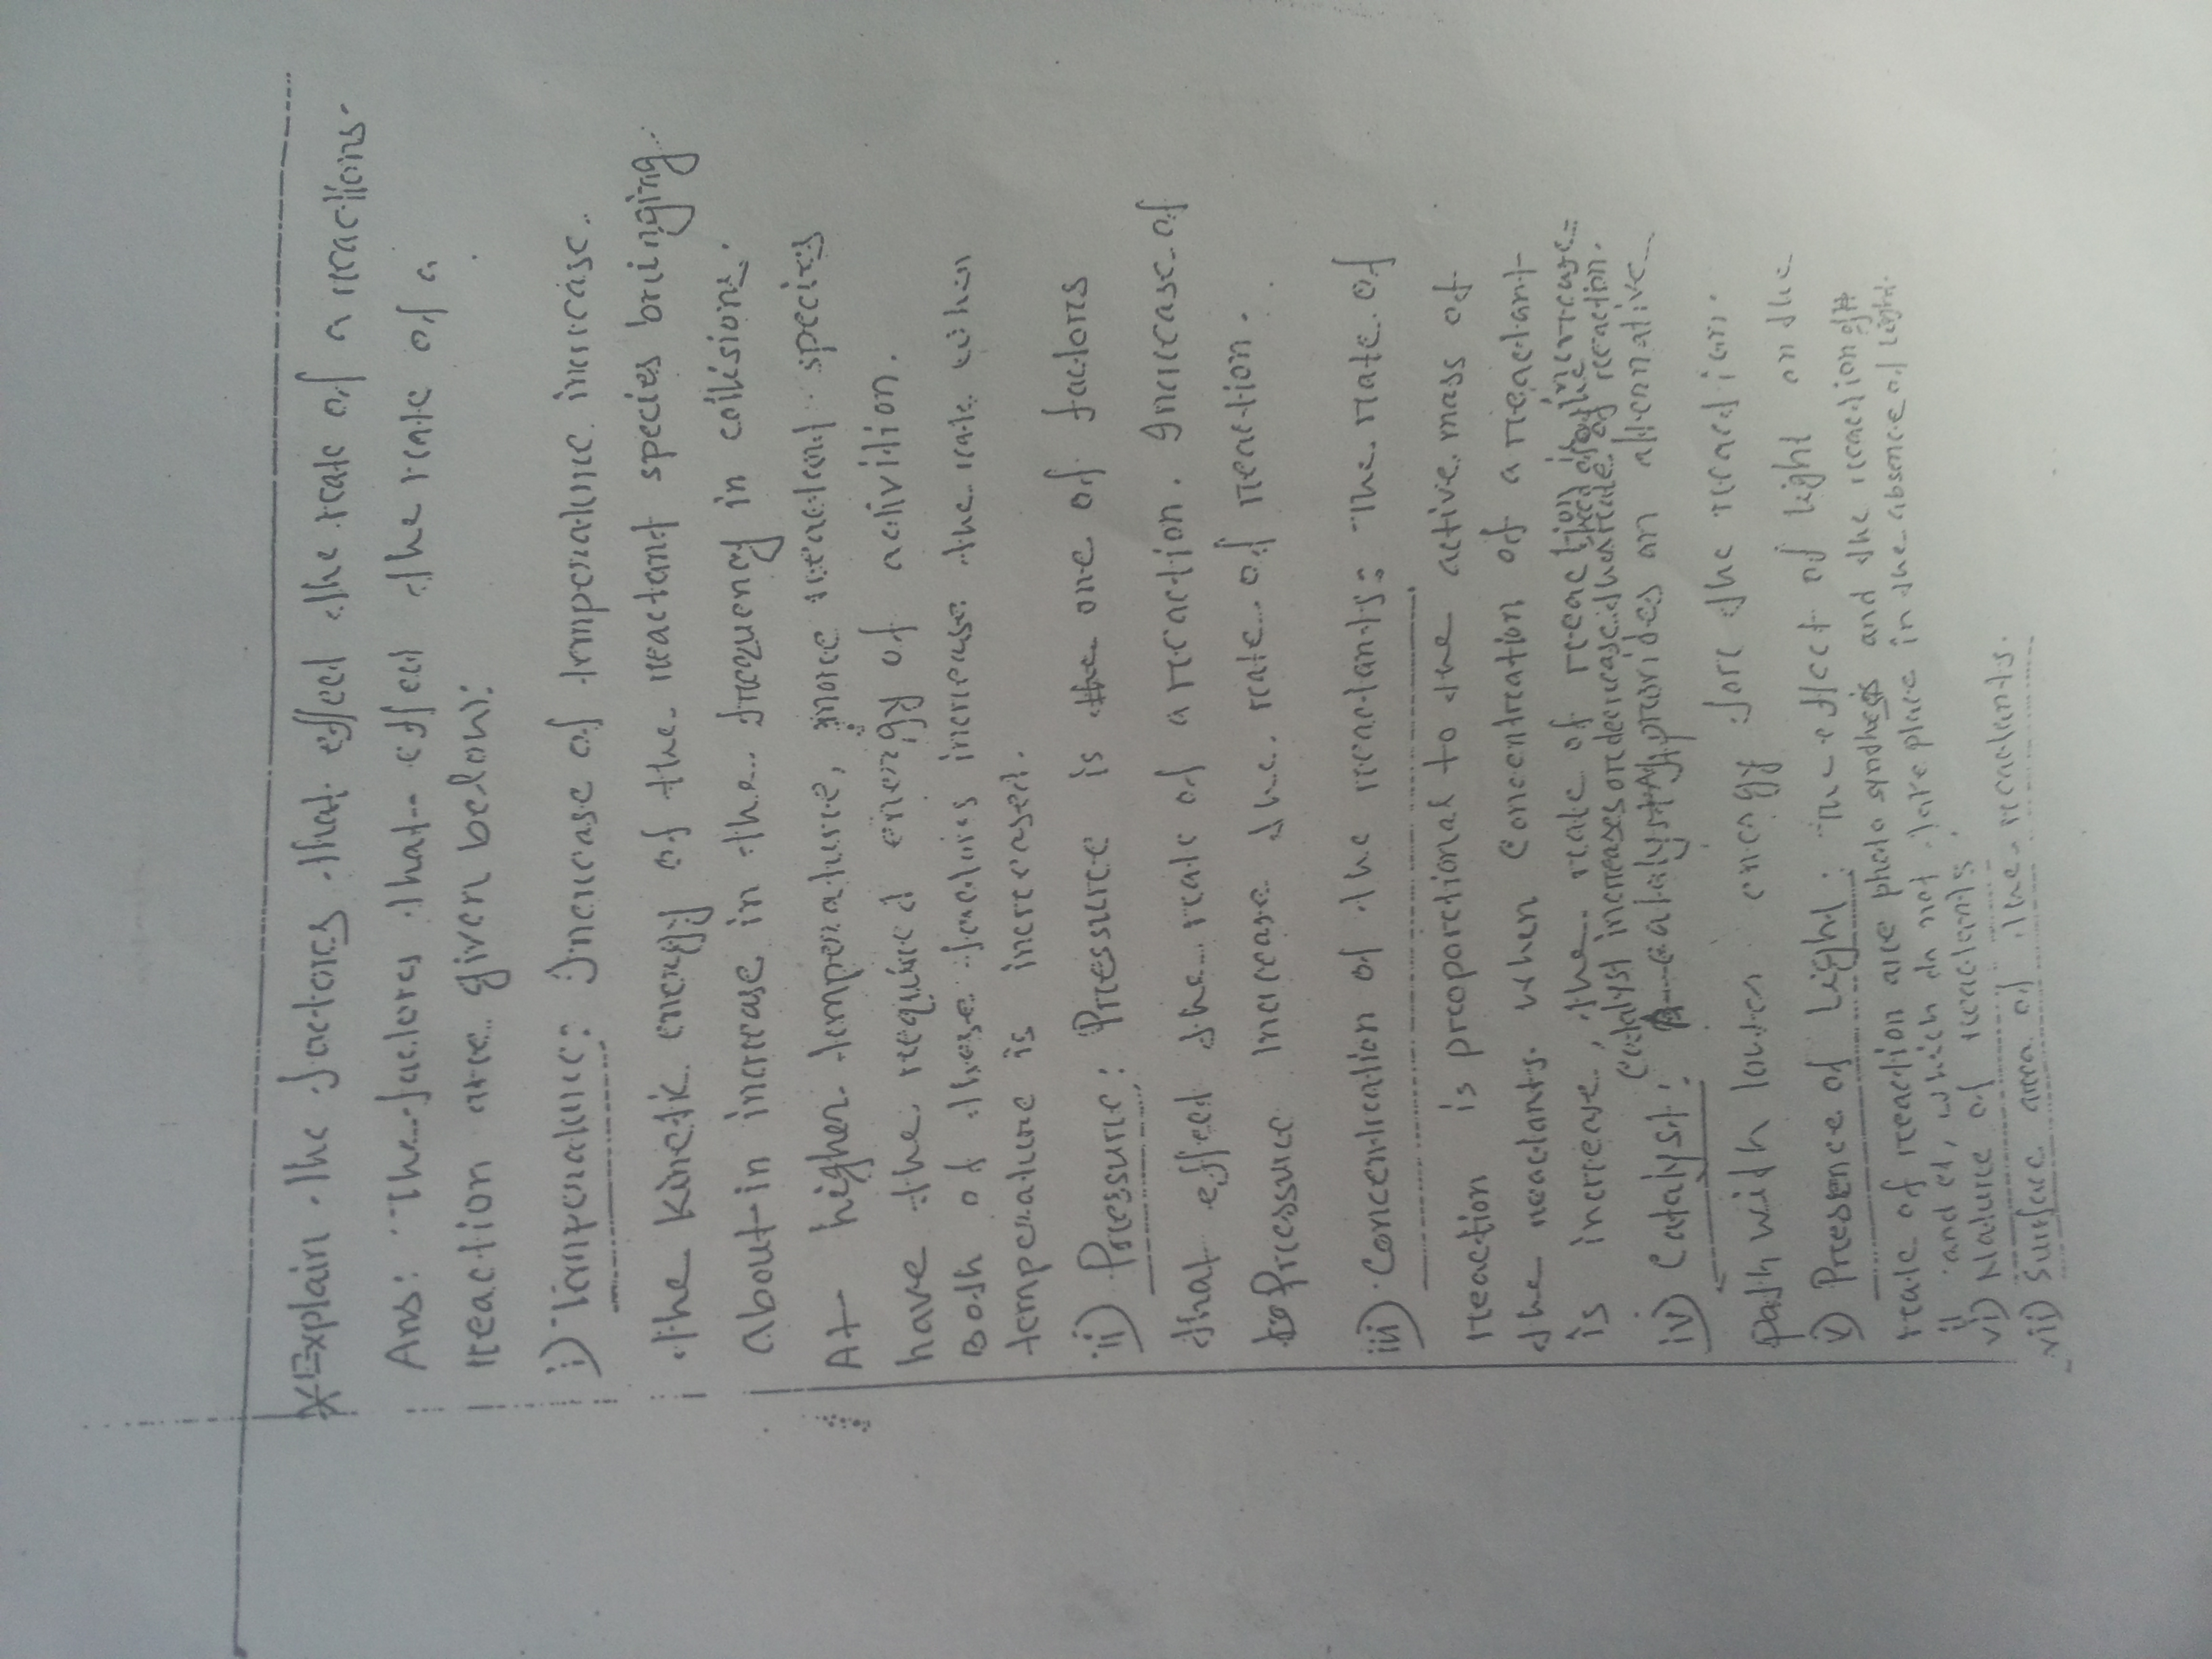 *Explain the factores that effect the reate of a reactions.
Ans: The factores that effect the reate of a
reaction are given below:
i) Temperature: Increase of temperature increase
the kinetic energy of the reactant species bringing
About in increase in the frequency in collisions.
At higher temperature, more reactant species
have the required energy of activition.
Both of these factores increase the rate when
temperature is increased.
ii) Pressure: Pressure is the one of factors
that effect the reate of a reaction. Increase of
Pressure Increase the reate of reaction.
iii) Concentration of the reactants: The rate of
reaction is proportional to the active mass of
the reactants. When Concentration of a reactant
is increase, the reate of reaction is increase
Catalyst increases or decrease the reate of reaction.
iv) Catalyst: A catalyst provides an alternative
path with lower energy fore the reaction.
v) Presence of Light: The effect of light on the
reate of reaction are photo synthesis and the reaction of H
and cl, which do not take place in the absence of light.
vi) Nature of reactants
vii) Surface area of the reactants.